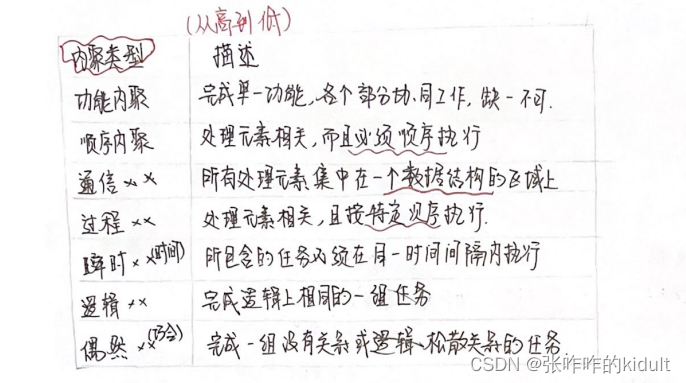 (从高到低)
内聚类型 描述
功能内聚 完成单一功能,各个部分协同工作,缺一不可.
顺序内聚 处理元素相关,而且必须顺序执行
通信×× 所有处理元素集中在一个数据结构的区域上
过程×× 处理元素相关,且按特定次序执行.
瞬时××(时间) 所包含的任务必须在同一时间间隔内执行
逻辑×× 完成逻辑上相同的一组任务
偶然××(巧合) 完成一组没有关系或逻辑、松散关系的任务
CSDN @张咋咋的kidult